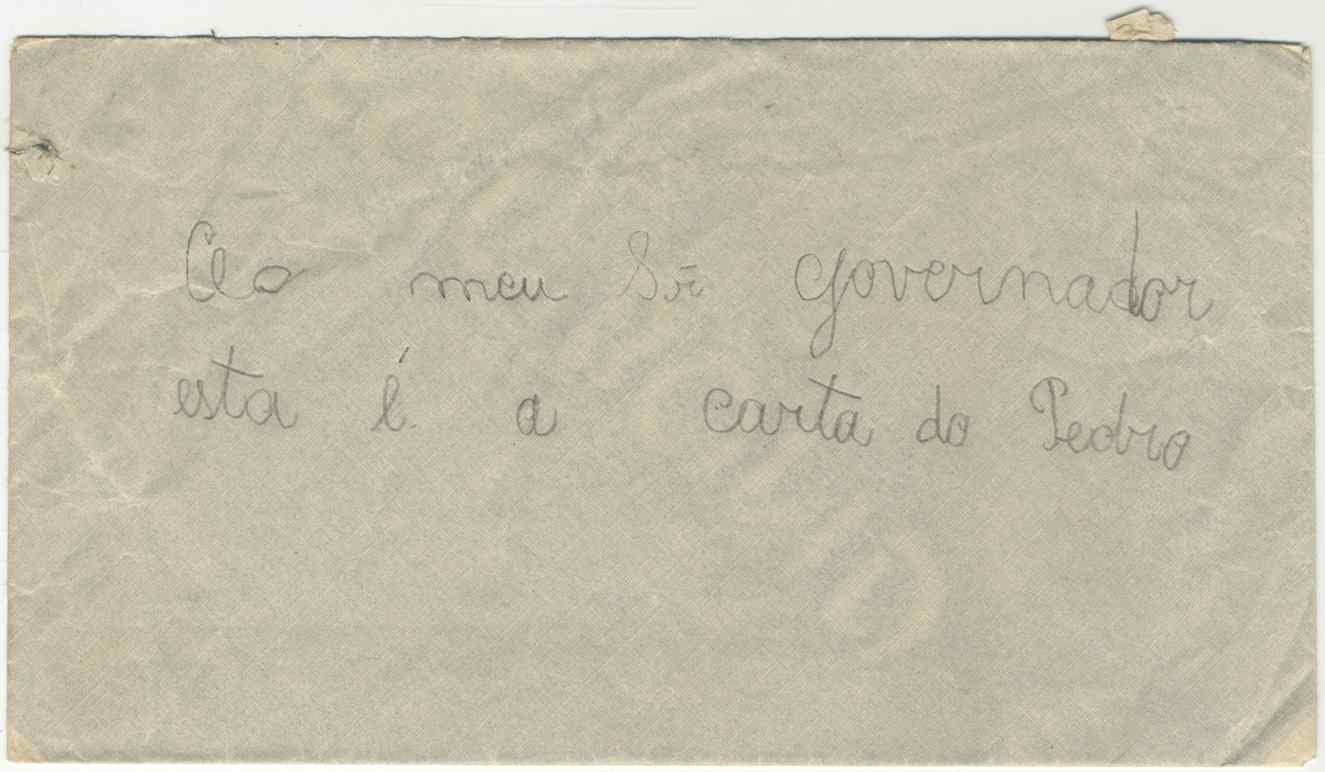 Ao meu Sr governador
esta é a carta do Pedro